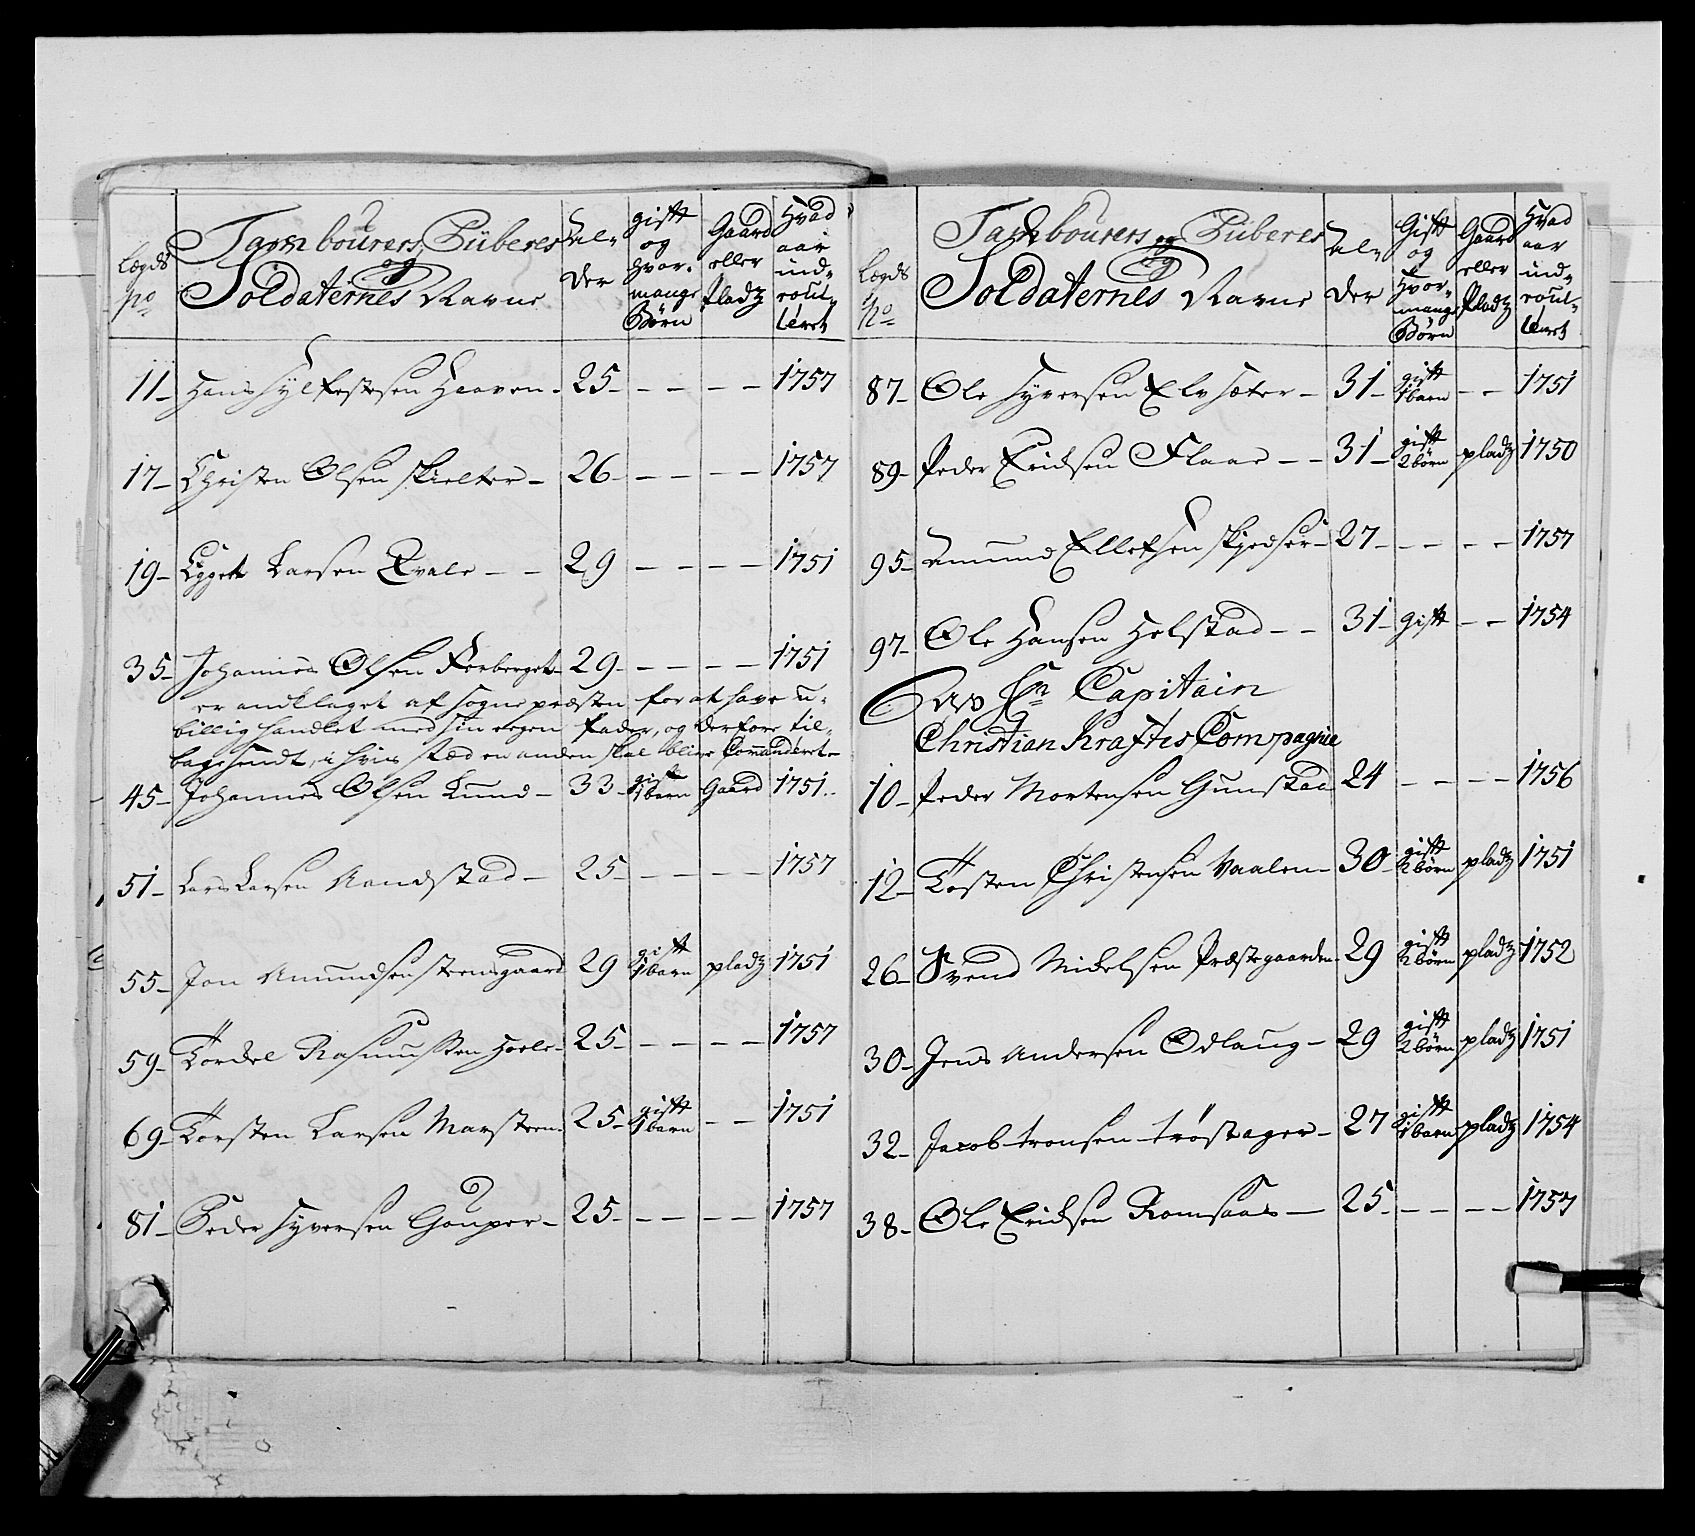 Lægds No
Tambourers Piiberes
og
Soldaternes Navne
Al-
der
gift
og
hvor-
mange
Børn
Gaard
eller
Pladz
Hvad
aar
ind-
roul-
leret
11 - Hans Sylfestesen Haaven - 25 - - - - - 1757
17 - Christen Olsen Skielter - 26 - - - - - 1757
19 - Larsen Qvale - - 29 - - - - 1751
35 - Johannes Olsen Forberget - 29 - - - - - 1751
er andklaget af Sognepræsten for at have u-
billig handlet med sin egen Fader, og derfore til-
bagesendt, i hvis stæd en anden skal blive Commanderet -
45 - Johannes Olsen Lund - 33 - gift 1 barn Gaard 1751 -
51 - Lars Larsen Aandstad - 25 - - - - - 1757
55 - Jon Amundsen Steensgaard 29 gift 1 barn pladz 1751
59 - Tordel Rasmussen Hoele - 25 - - - - - 1757
69 - Torsten Larsen Marsteen - 25 - gift 1 barn - - 1751
81 - Peder Syversen Gouper - 25 - - - - - 1757
Lægds No
Tambourers og Piiberes
og
Soldaternes Navne
Al-
der
Gift
og
Hvor-
mange
Børn
Gaard
eller
Pladz
Hvad
aar
ind-
roul-
leret
87 - Ole Syversen Elvsæter - 31 - gift 1 barn - - 1751
89 - Peder Ericksen Flaae - - 31 - gift 2 børn pladz 1750
95 - Amund Ellefsen Skjedsør - 27 - - - - - 1757
97 - Ole Hansen Helstad - - 31 - gift - - 1754
Af Hr Capitain
Christian Krafts Compagnie
10 - Peder Mortensen Gunstad 24 - - - - 1756
12 - Tosten Christensen Vaalen - 30 - gift 2 børn pladz 1751
26 - Svend Nickelsen Præstegaarden - 29 gift 2 børn pladz 1752
30 - Jens Andersen Odlaug - 29 gift 2 børn pladz 1751
32 - Jacob tronsen trøstager - 27 gift 1 barn pladz 1754
38 - Ole Ericksen Romsaas - 25 - - - - - 1757